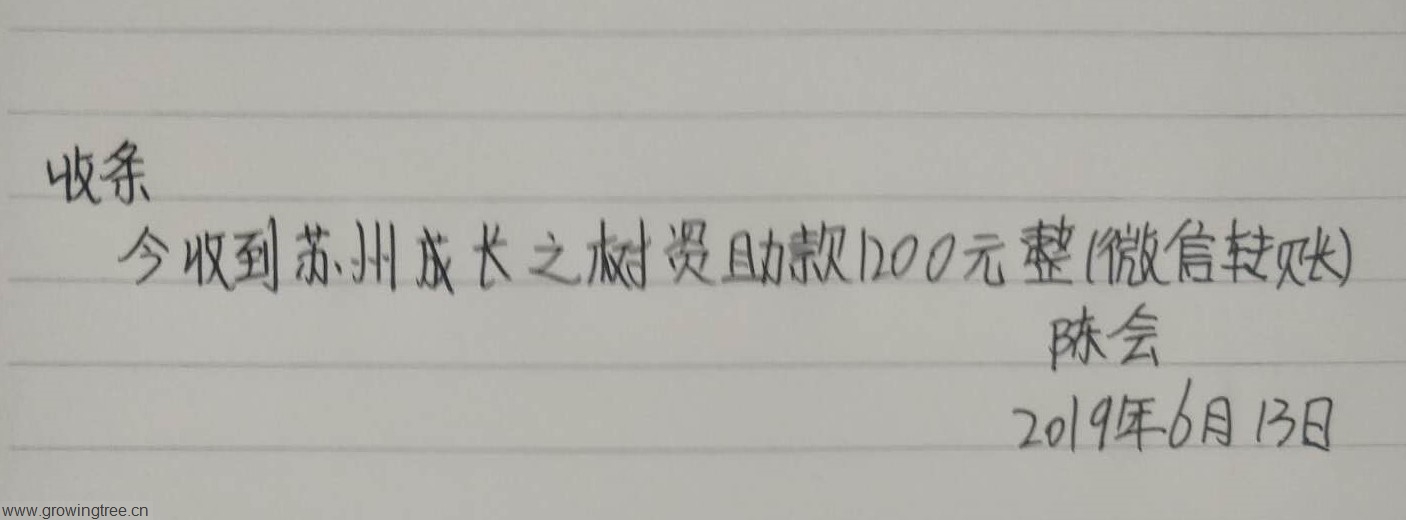 收条
今收到苏州成长之树资助款1200元整(微信转账)
陈会
2019年6月13日
www.growingtree.cn